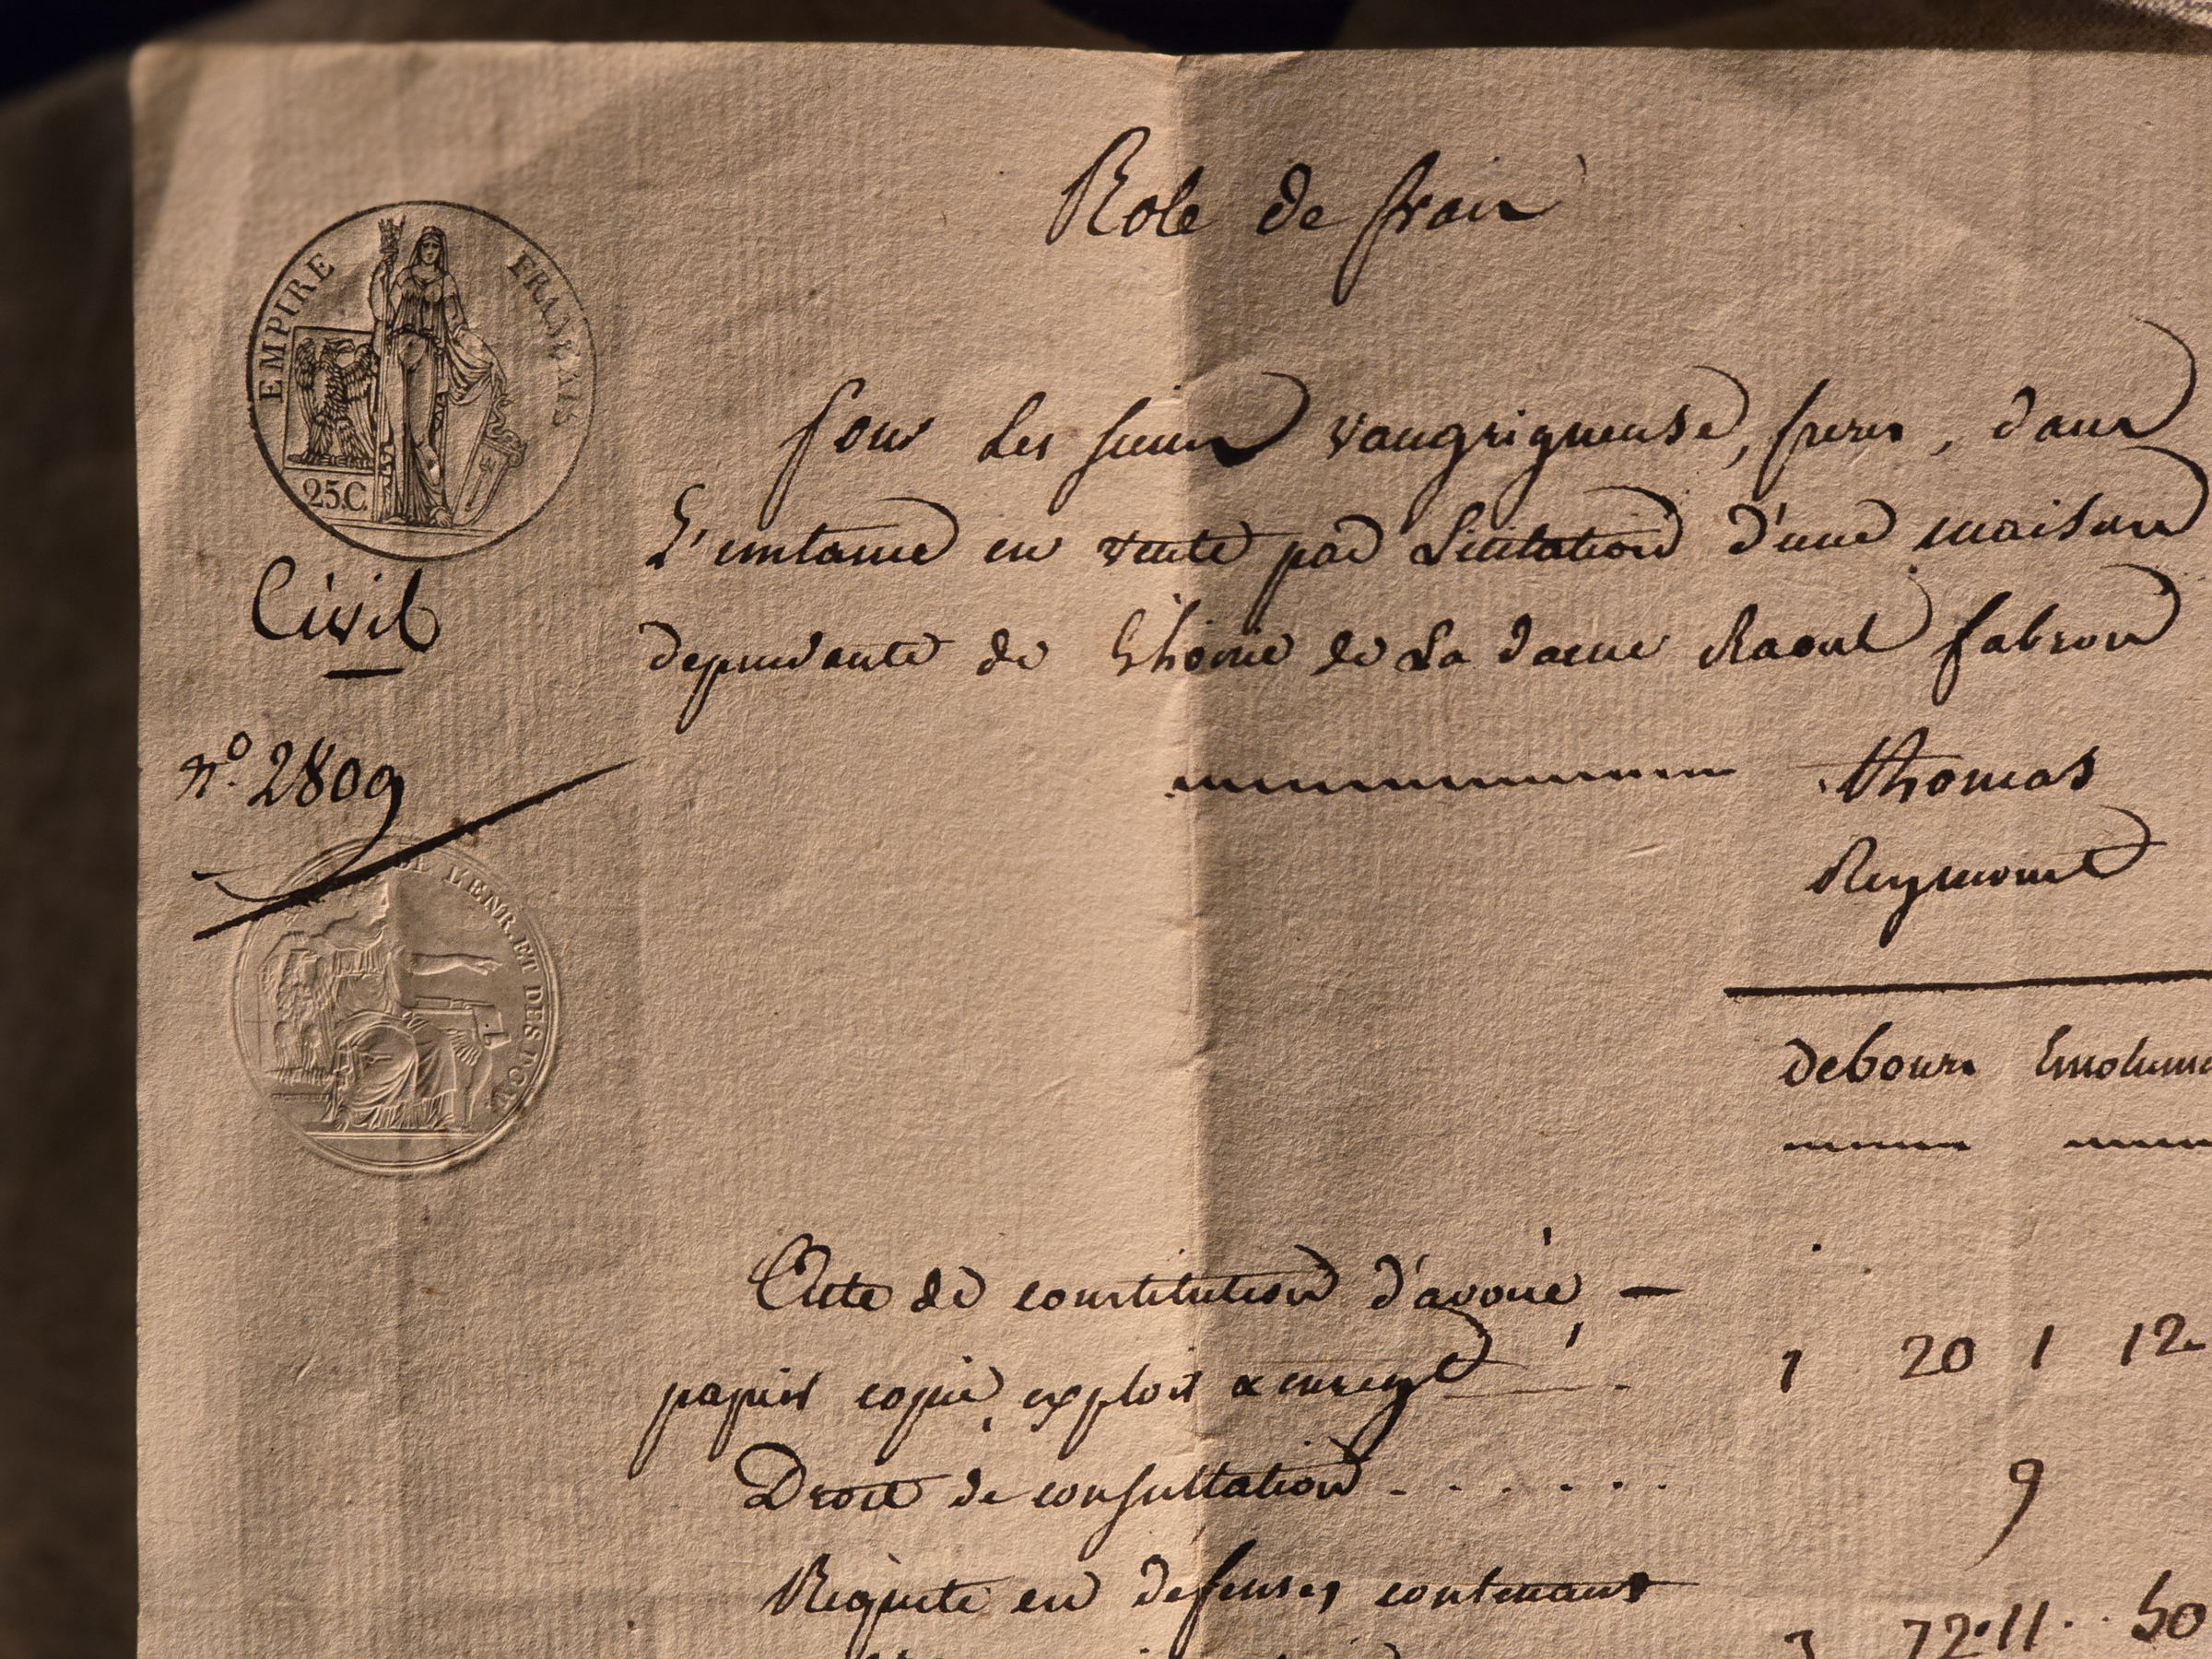 Role de frais
EMPIRE FRANÇAIS
25.C.
Pour Les sieurs vaugrigneuse, freres, dans
L'instance en vente par Licitation d'une maison
dependante de L'hoirie de La dame Raoul fabron
Civil
n.º 2809
thomas
Reymond
DE L'ENR. ET DES DOM
debours Emolume
Acte de constitution d'avoué —
papier copie, exploit & enregt 1 20 1 12
Droit de consultation . . . . . . 9
Requete en defenses contenant
3 72 11 50